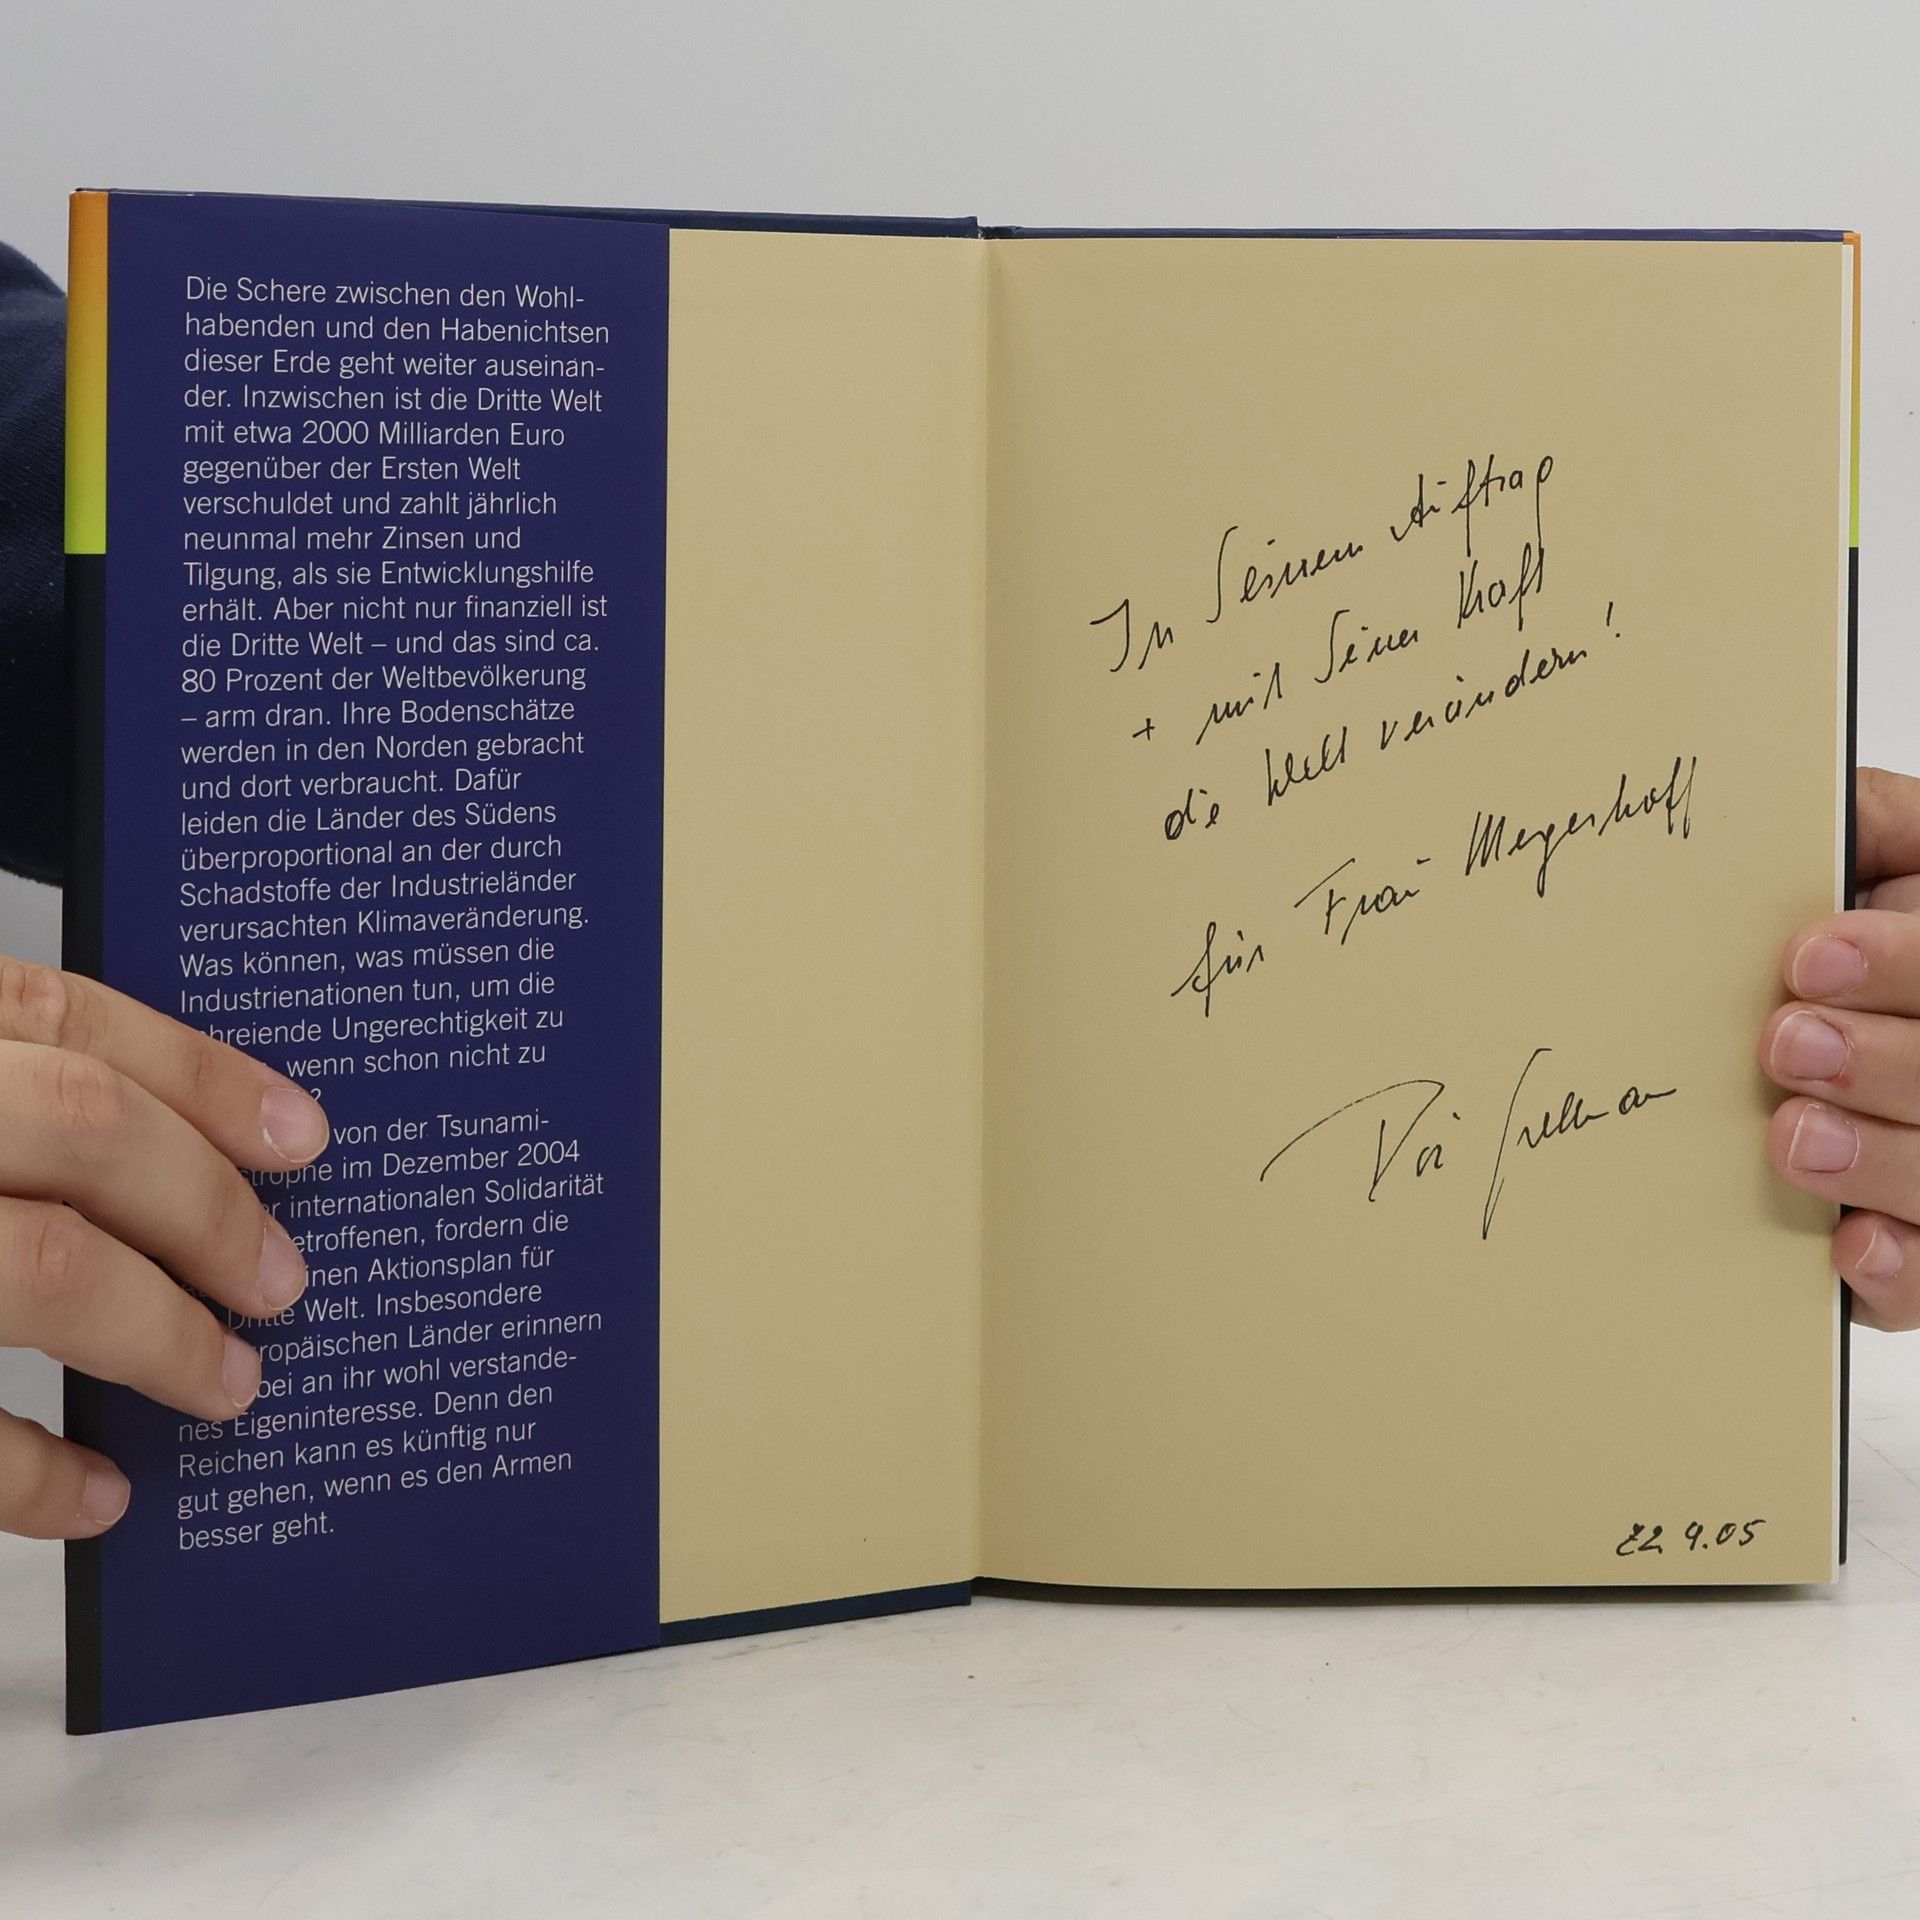 Die Schere zwischen den Wohl-
habenden und den Habenichtsen
dieser Erde geht weiter auseinan-
der. Inzwischen ist die Dritte Welt
mit etwa 2000 Milliarden Euro
gegenüber der Ersten Welt
verschuldet und zahlt jährlich
neunmal mehr Zinsen und
Tilgung, als sie Entwicklungshilfe
erhält. Aber nicht nur finanziell ist
die Dritte Welt – und das sind ca.
80 Prozent der Weltbevölkerung
– arm dran. Ihre Bodenschätze
werden in den Norden gebracht
und dort verbraucht. Dafür
leiden die Länder des Südens
überproportional an der durch
Schadstoffe der Industrieländer
verursachten Klimaveränderung.
Was können, was müssen die
Industrienationen tun, um die
hreiende Ungerechtigkeit zu
wenn schon nicht zu
?
von der Tsunami-
strophe im Dezember 2004
r internationalen Solidarität
etroffenen, fordern die
inen Aktionsplan für
Dritte Welt. Insbesondere
ropäischen Länder erinnern
bei an ihr wohl verstande-
nes Eigeninteresse. Denn den
Reichen kann es künftig nur
gut gehen, wenn es den Armen
besser geht.
In Seinem Auftrag
+ mit Seiner Kraft
die Welt verändern!
für Frau Meyerhoff
22 9.05